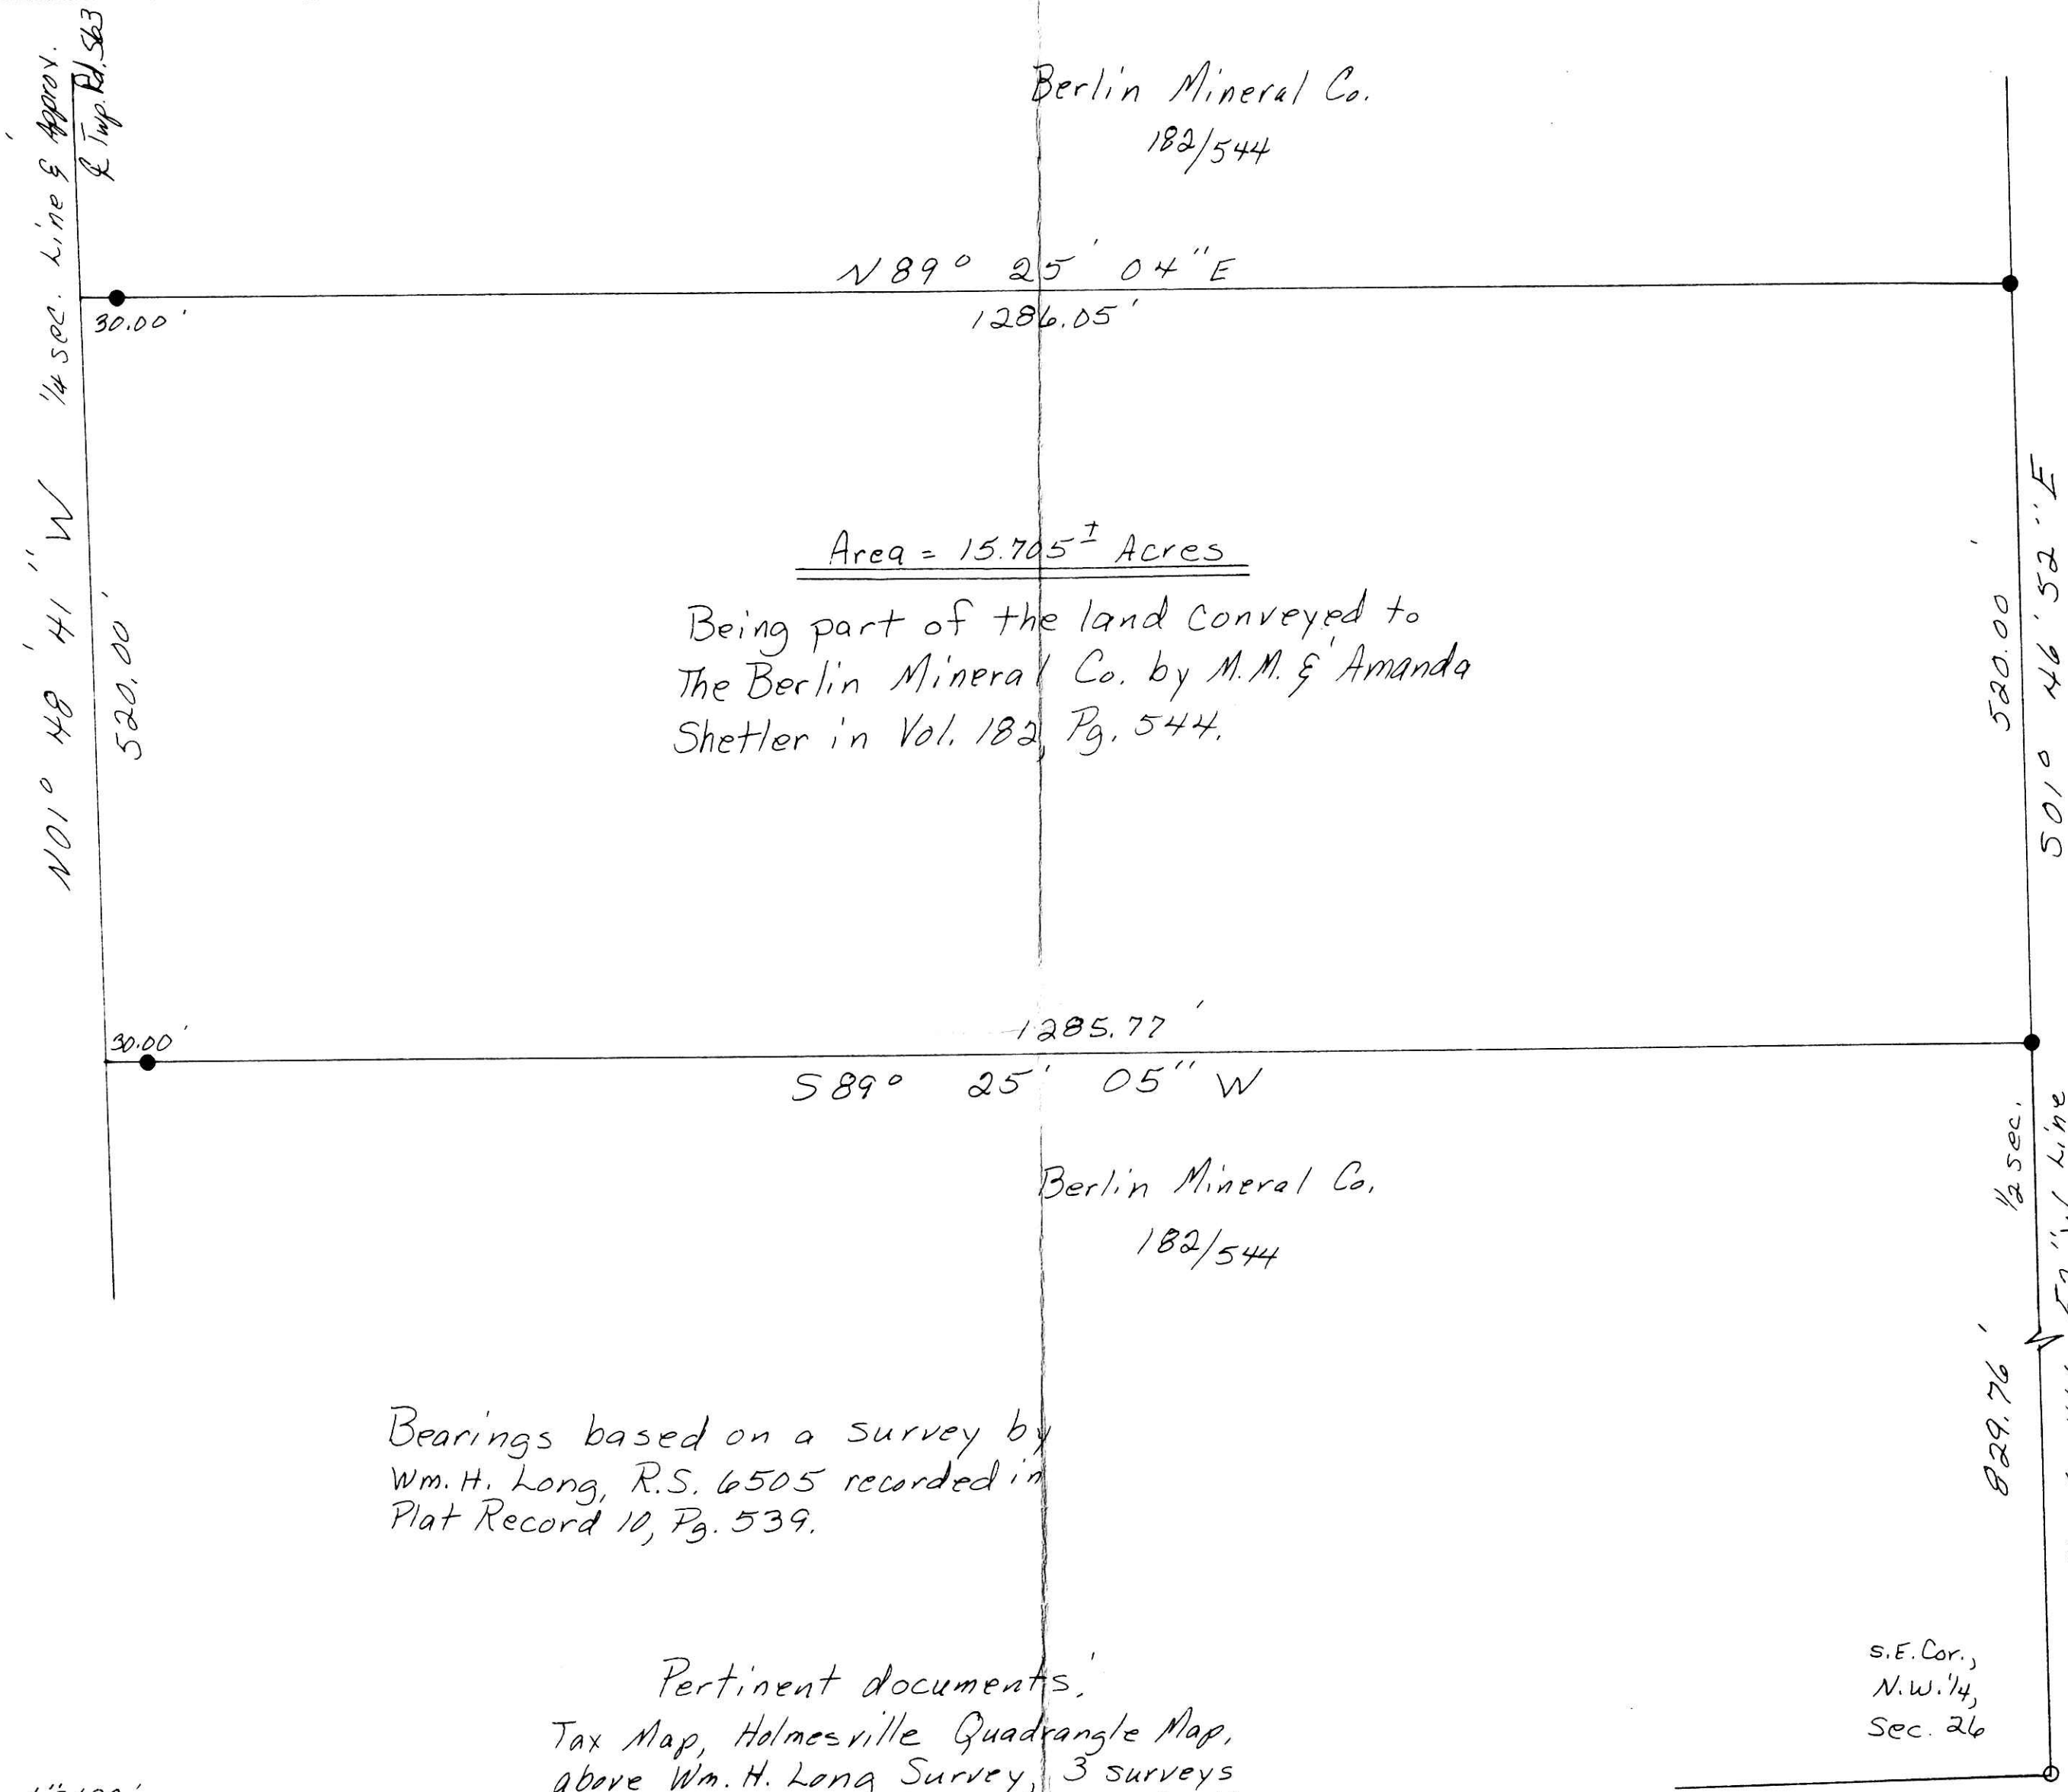 1/4 sec. Line & Approx.
℄ Twp. Rd. 563
Berlin Mineral Co.
182/544
N 89° 25' 04" E
30.00'
1286.05'
N01° 48' 41" W
520.00'
Area = 15.705± Acres
Being part of the land conveyed to
The Berlin Mineral Co. by M.M. & Amanda
Shetler in Vol. 182, Pg. 544.
520.00'
S01° 46' 52" E
30.00'
1285.77'
S 89° 25' 05" W
Berlin Mineral Co.
182/544
1/2 sec.
Line
829.76'
Bearings based on a survey by
Wm. H. Long, R.S. 6505 recorded in
Plat Record 10, Pg. 539.
S.E. Cor.,
N.W. 1/4,
Sec. 26
Pertinent documents:
Tax Map, Holmesville Quadrangle Map,
above Wm. H. Long Survey, 3 surveys